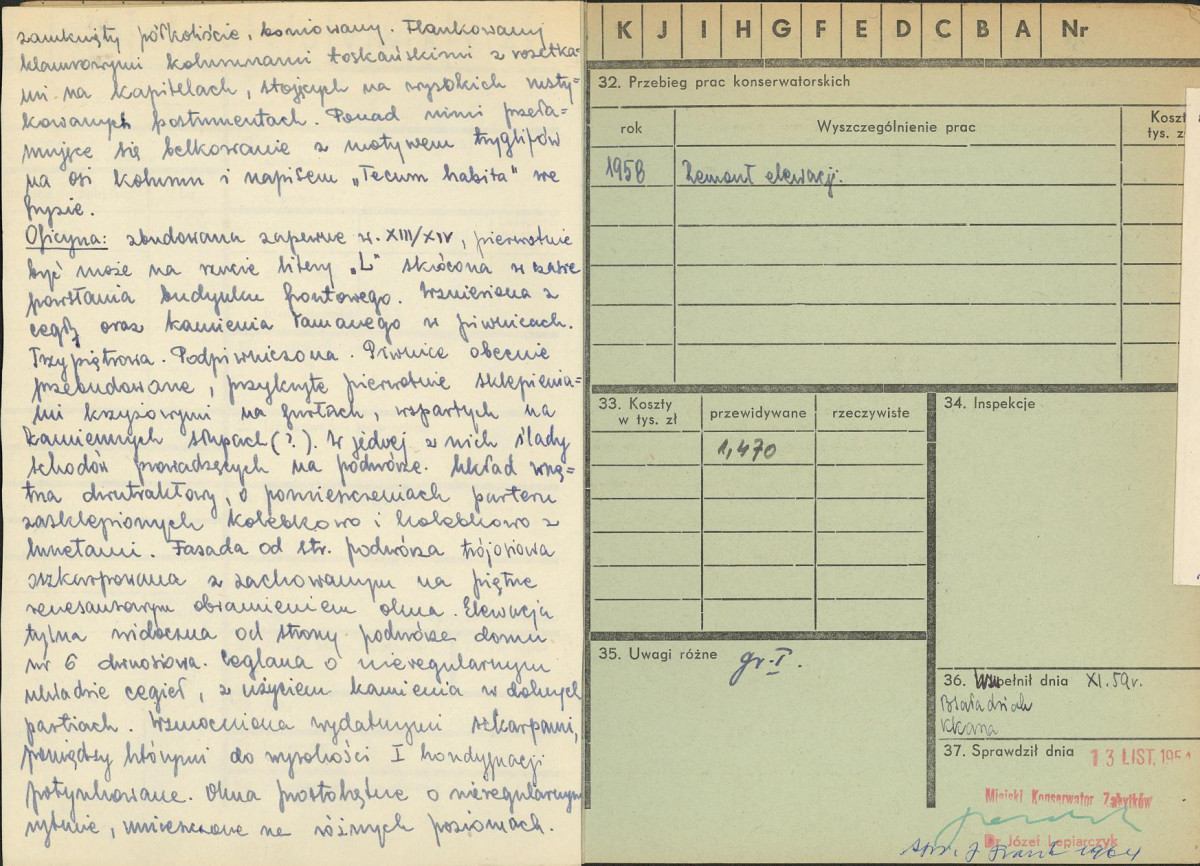 zamknięty półkoliście, boniowany. Flankowany
klamrowymi kolumnami toskańskimi z rozetka-
mi na kapitelach, stojących na wysokich rusty-
kowanych postumentach. Ponad nimi przeła-
mujące się belkowanie z motywem tryglifów
na osi kolumn i napisem „Tecum habita" we
fryzie.
Oficyna: zbudowana zapewne w. XIII/XIV, pierwotnie
być może na rzucie litery „L" skrócona w czasie
powstania budynku frontowego. Wzniesiona z
cegły oraz kamienia łamanego w piwnicach.
Trzypiętrowa. Podpiwniczona. Piwnice obecnie
przebudowane, przykryte pierwotnie sklepienia-
mi krzyżowymi na gurtach, wspartych na
kamiennych słupach (?). W jednej z nich ślady
schodów prowadzących na podwórze. Układ wnę-
trza dwutraktowy, o pomieszczeniach parteru
zasklepionych kolebkowo i kolebkowo z
lunetami. Fasada od str. podwórza trójosiowa
oszkarpowana z zachowanym na piętrze
renesansowym obramieniem okna. Elewacja
tylna widoczna od strony podwórza domu
nr 6 dwuosiowa. Ceglana o nieregularnym
układzie cegieł, z użyciem kamienia w dolnych
partiach. Wzmocniona wydatnymi szkarpami,
pomiędzy którymi do wysokości I kondygnacji
potynkowane. Okna prostokątne o nieregularnym
rytmie, umieszczone na różnych poziomach.
K J I H G F E D C B A Nr
32. Przebieg prac konserwatorskich
rok Wyszczególnienie prac Koszt tys. z
1958 Remont elewacji.
33. Koszty w tys. zł przewidywane rzeczywiste
1,470
34. Inspekcje
35. Uwagi różne gr. I.
36. Wypełnił dnia XI.59r.
37. Sprawdził dnia 13 LIST. 195
Miejski Konserwator Zabytków
Dr Józef Lepiarczyk
1964